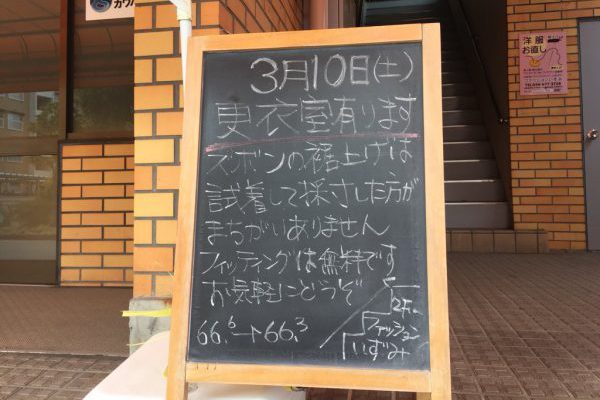 3月10日(土)
更衣室有ります
ズボンの裾上げは
試着して採寸した方が
まちがいありません
フィッティングは無料です
お気軽にどうぞ
66.6→66.3
2F
ファッション
いずみ
洋服
お直し